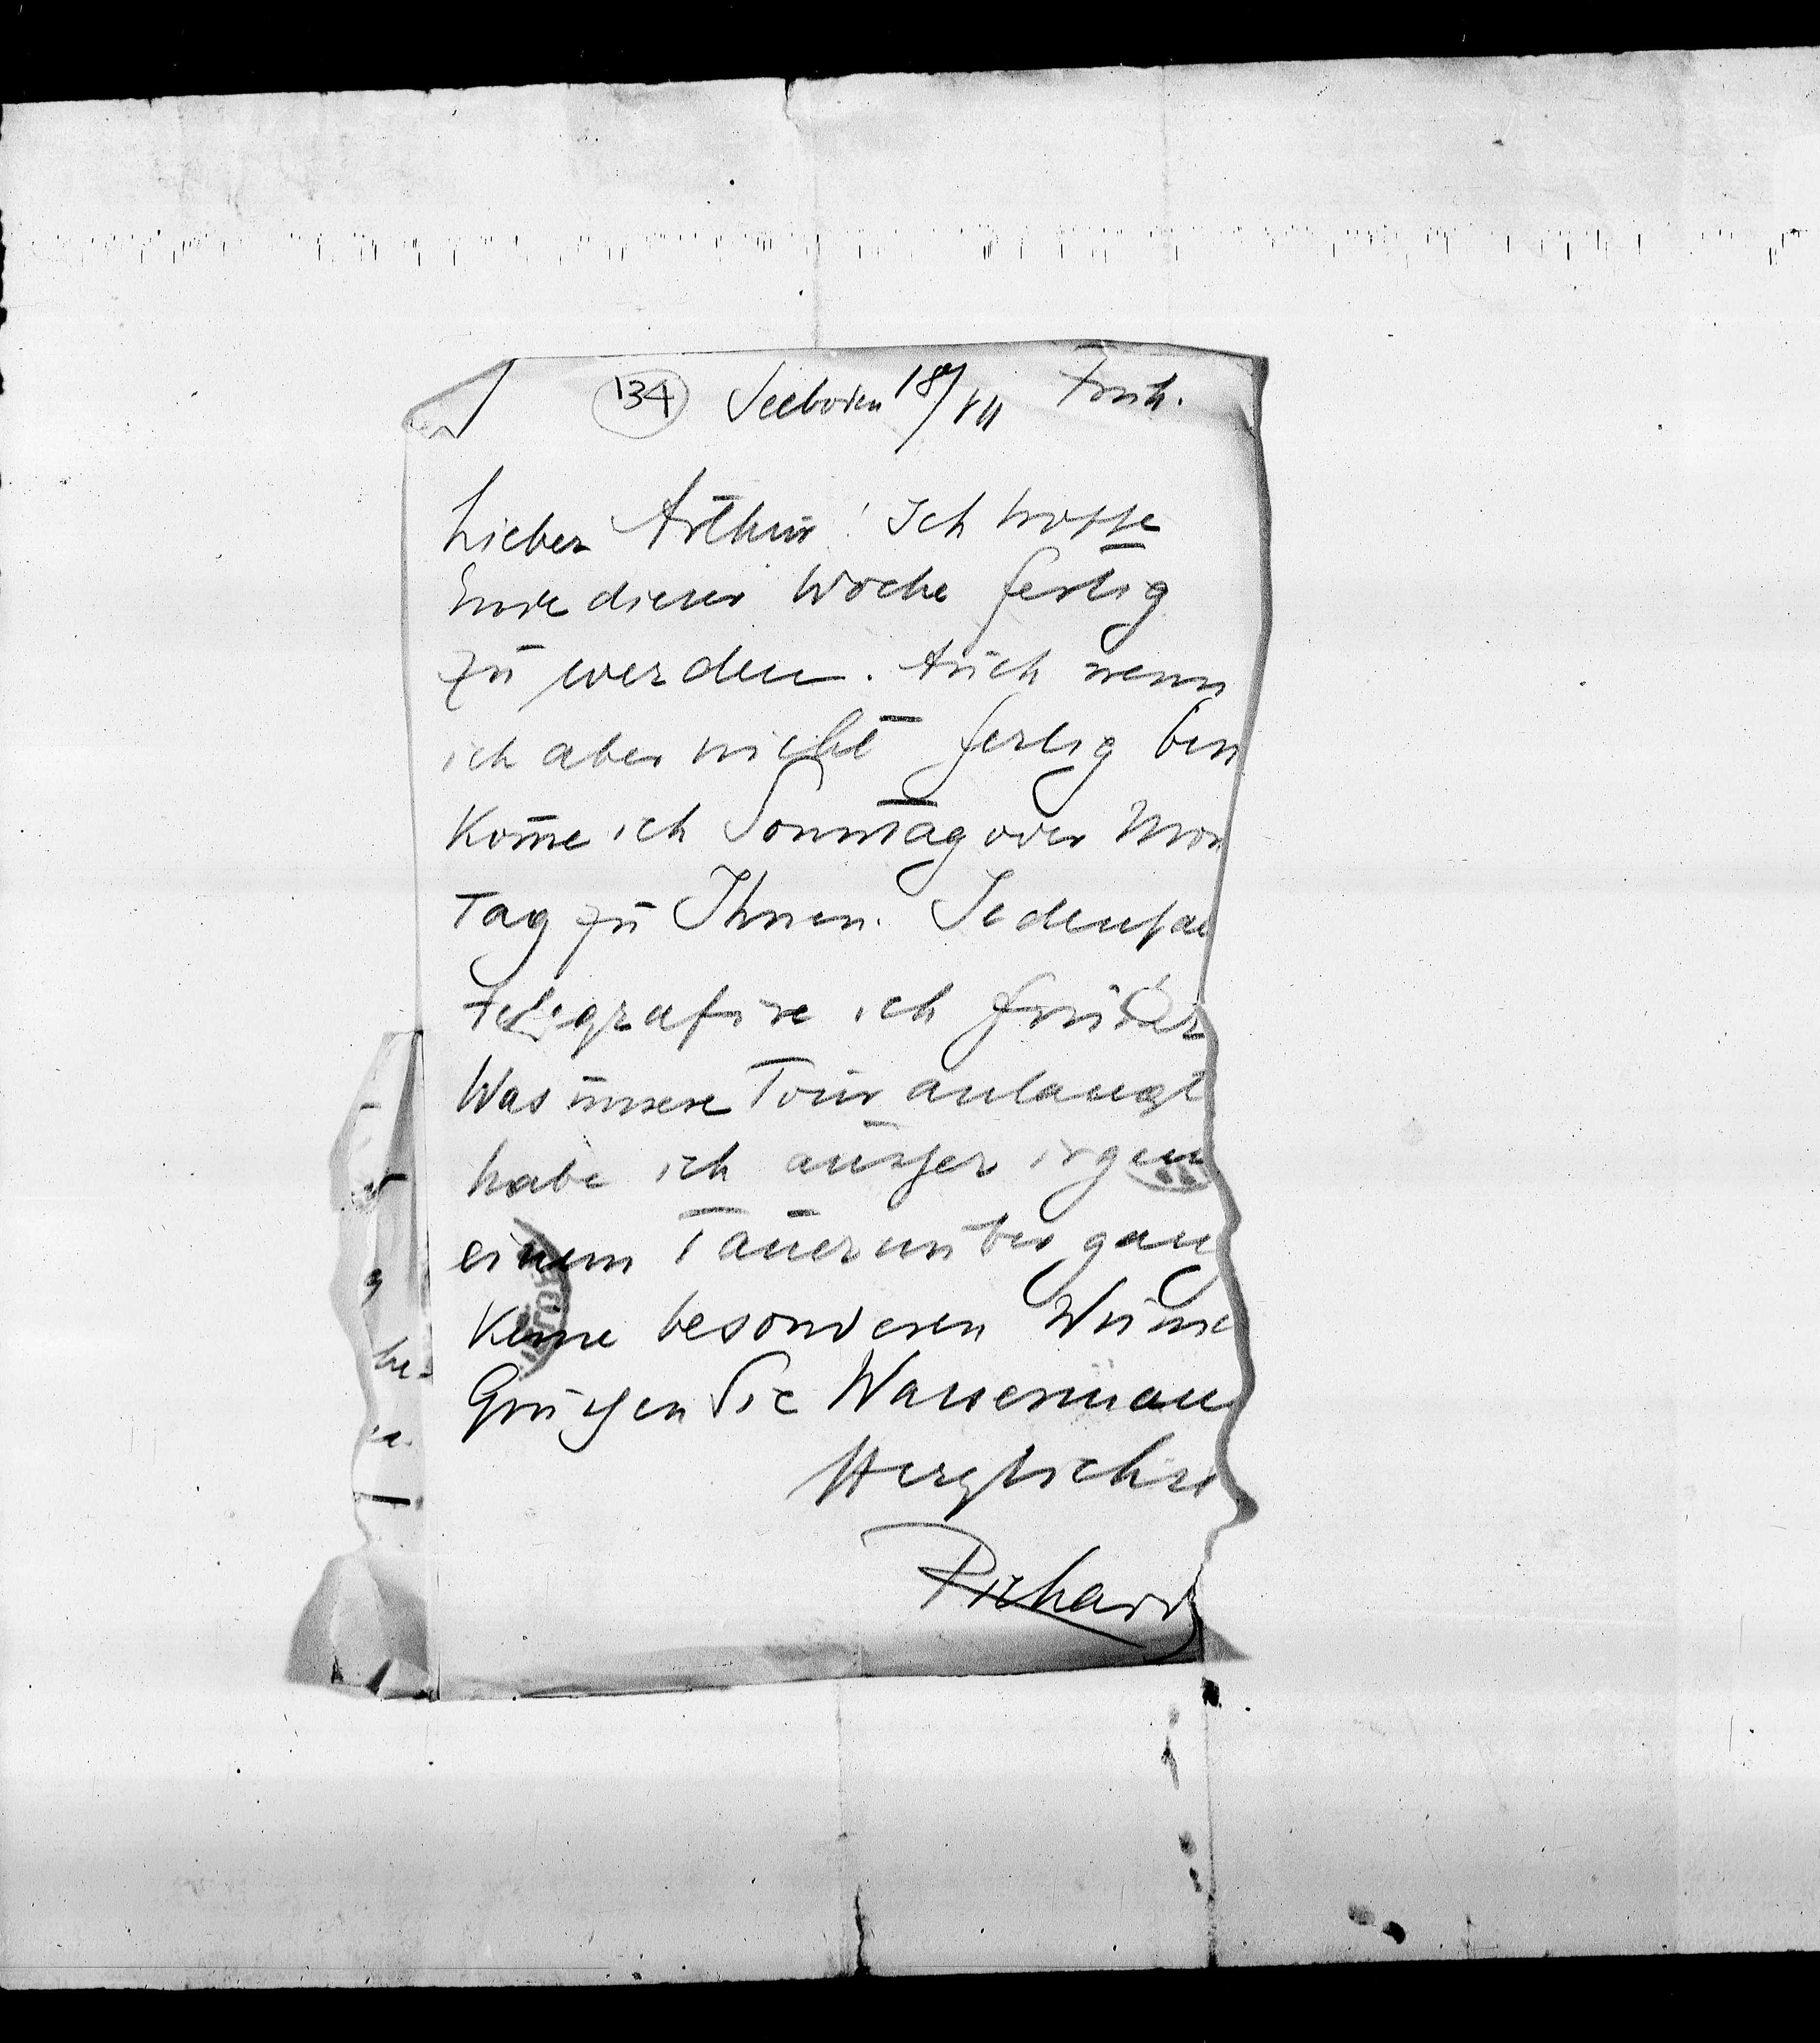 134 Seeboden 18/VII Früh.
Lieber Arthur! Ich hoffe
Ende dieser Woche fertig
zu werden. Auch wenn
ich aber nicht fertig bin
kom̅e ich Sonntag oder Mon
tag zu Ihnen. Jedenfal
telegrafire ich früher
Was unsere Tour anlangt
habe ich außer irgen
einem Tauernübergang
keine besonderen Wünsc
Grüßen Sie Wasserman
Herzlichst
Richard